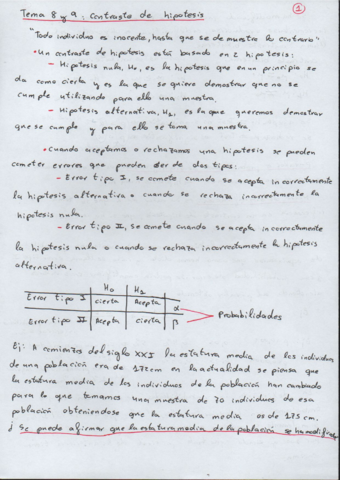 Tema 8 y 9: Contraste de hipotesis
1
"Todo individuo es inocente, hasta que se demuestre lo contrario"
• Un contraste de hipotesis está basado en 2 hipotesis:
- Hipotesis nula, H0, es la hipotesis que en un principio se
da como cierta y es la que se quiere demostrar que no se
cumple utilizando para ello una muestra.
- Hipotesis alternativa, H1, es la que queremos demostrar
que se cumple y para ello se toma una muestra.
• Cuando aceptamos o rechazamos una hipotesis se pueden
cometer errores que pueden ser de dos tipos:
- Error tipo I, se comete cuando se acepta incorrectamente
la hipotesis alternativa o cuando se rechaza incorrectamente la
hipotesis nula.
- Error tipo II, se comete cuando se acepta incorrectamente
la hipotesis nula o cuando se rechaza incorrectamente la hipotesis
alternativa.
H0 H1
Error tipo I cierta Acepta α
Error tipo II Acepta cierta β
Probabilidades
Ej: A comienzos del siglo XXI la estatura media de los individuos
de una población era de 172cm en la actualidad se piensa que
la estatura media de los individuos de la población han cambiado
para lo que tomamos una muestra de 70 individuos de esa
población obteniendose que la estatura media es de 175 cm.
¿Se puede afirmar que la estatura media de la población se ha modificado